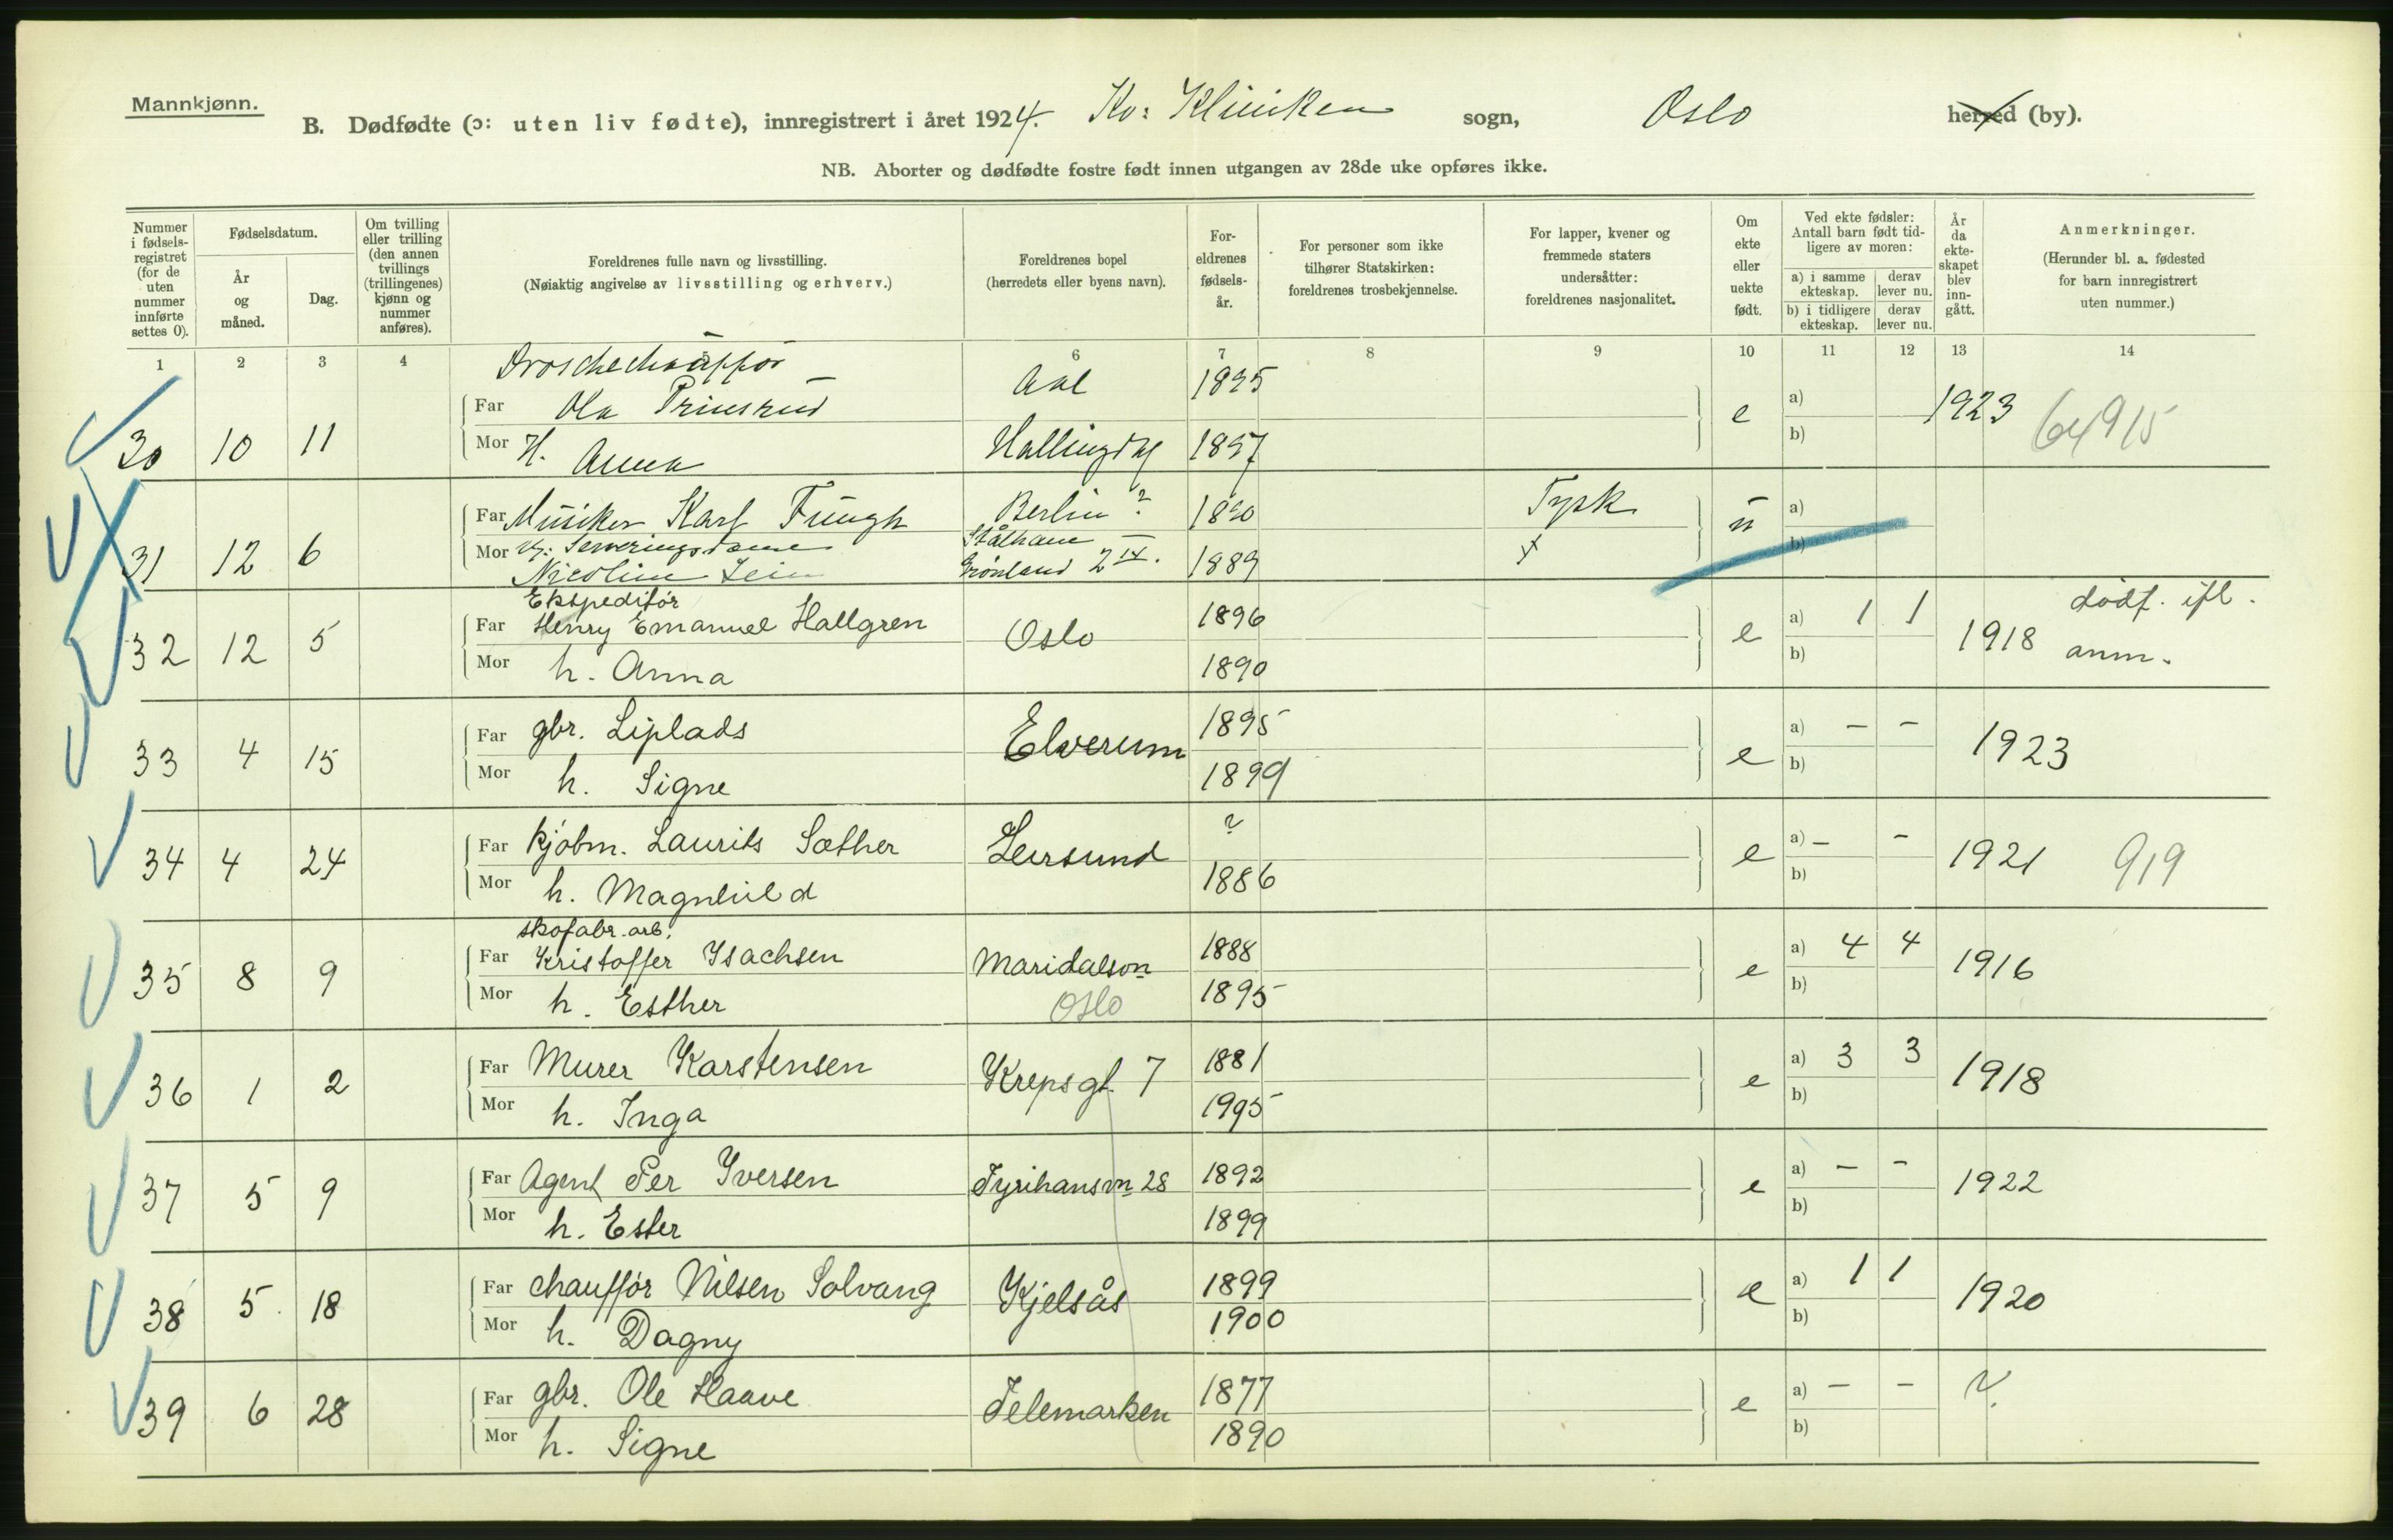 Mannkjønn.
B. Dødfødte (ɔ: uten liv fødte), innregistrert i året 1924. Kv: Kliniken sogn, Oslo herred (by).
NB. Aborter og dødfødte fostre født innen utgangen av 28de uke opføres ikke.
Nummer i fødsels-registret (for de uten nummer innførte settes 0).
Fødselsdatum.
År og måned.
Dag.
Om tvilling eller trilling (den annen tvillings (trillingenes) kjønn og nummer anføres).
Foreldrenes fulle navn og livsstilling.
(Nøiaktig angivelse av livsstilling og erhverv.)
Foreldrenes bopel
(herredets eller byens navn).
For-eldrenes fødsels-år.
For personer som ikke tilhører Statskirken: foreldrenes trosbekjennelse.
For lapper, kvener og fremmede staters undersåtter: foreldrenes nasjonalitet.
Om ekte eller uekte født.
Ved ekte fødsler: Antall barn født tid-ligere av moren:
a) i samme ekteskap. derav lever nu.
b) i tidligere ekteskap. derav lever nu.
År da ekte-skapet blev inn-gått.
Anmerkninger.
(Herunder bl. a. fødested for barn innregistrert uten nummer.)
1 2 3 4 6 7 8 9 10 11 12 13 14
Droschechauffør
Far Ola Aal 1895 a)
30 10 11 e 1923 64915
Mor H. Anna Hallingdal 1897 b)
Far Musiker Karl Berlin ? 1890 Tysk a)
31 12 6 u
Mor Ug: Serveringsdame Stålhane
Nicoline Grønland 2 IV. 1889 b)
Ekspeditør
Far Henry Emanuel Hallgren 1896 a) 1 1 dødf. ifl.
32 12 5 Oslo e 1918 anm.
Mor h. Anna 1890 b)
Far gbr. Liplads 1895 a) - -
33 4 15 Elverum e 1923
Mor h. Signe 1899 b)
Far kjøbm. Laurits Sæther ? a) - -
34 4 24 Leirsund e 1921 919
Mor h. Magnhild 1886 b)
skofabr. arb.
Far Kristoffer Isachsen 1888 a) 4 4
35 8 9 Maridalsvn e 1916
Mor h. Esther Oslo 1895 b)
Far Murer Karstensen 1881 a) 3 3
36 1 2 Krepsgt. 7 e 1918
Mor h. Inga 1995 b)
Far Agent Per Iversen 1892 a) - -
37 5 9 Fyrihansvn 28 e 1922
Mor h. Ester 1899 b)
Far chauffør Nilsen Solvang 1899 a) 1 1
38 5 18 Kjelsås e 1920
Mor h. Dagny 1900 b)
Far gbr. Ole Haave 1877 a) - - ?
39 6 28 Telemarken e
Mor h. Signe 1890 b)